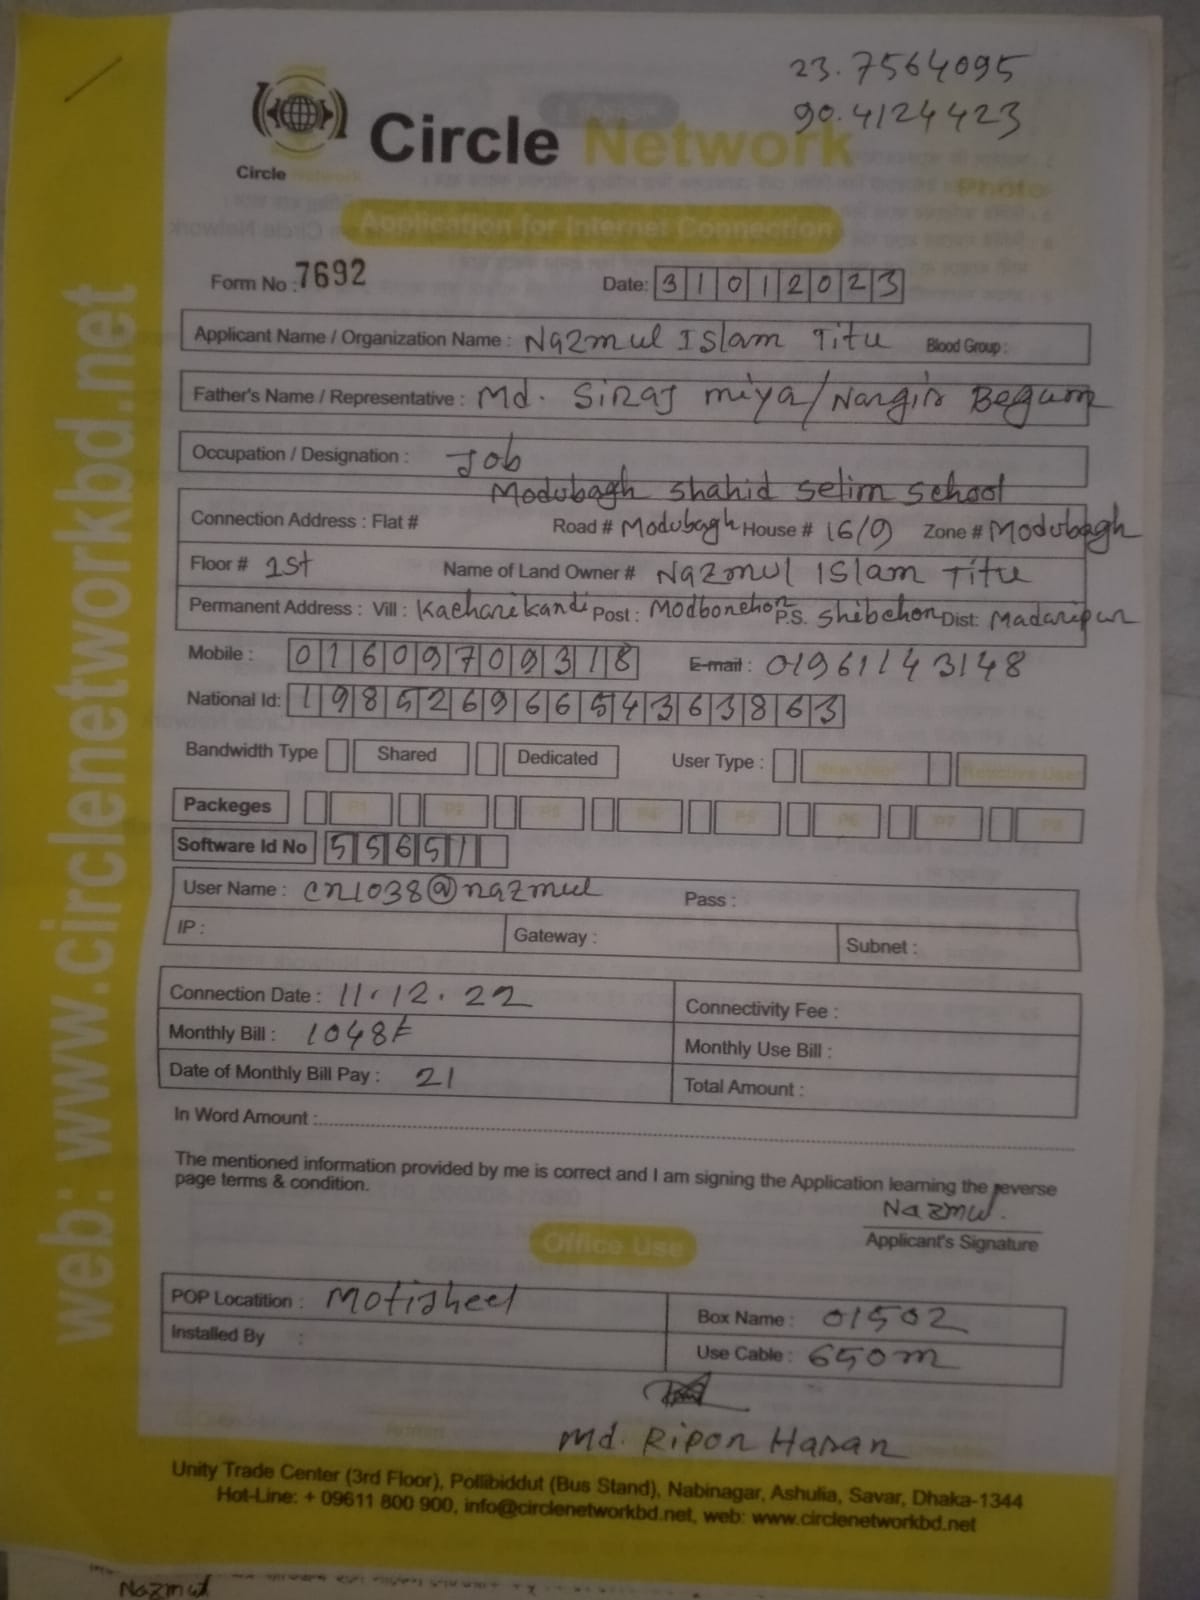 23.7564095
90.4124423
Circle Network
Circle Network
Application for Internet Connection
Form No : 7692 Date: 31012023
Applicant Name / Organization Name : Nazmul Islam Titu Blood Group :
Father's Name / Representative : Md. Siraj miya/Nargis Begum
Occupation / Designation : Job
Modubagh Shahid Selim School
Connection Address : Flat # Road # Modubagh House # 16/9 Zone # Modubagh
Floor # 1st Name of Land Owner # Nazmul Islam Titu
Permanent Address : Vill : Kacharikandi Post : Modbonchor P.S. Shibchon Dist: Madaripur
Mobile : 01609709318 E-mail : 01961143148
National Id: 19852696654363863
Bandwidth Type Shared Dedicated User Type : New User Reactive User
Packeges P1 P2 P3 P4 P5 P6 P7 P8
Software Id No 55651
User Name : cn1038@nazmul Pass :
IP : Gateway : Subnet :
Connection Date : 11.12.22 Connectivity Fee :
Monthly Bill : 1048/= Monthly Use Bill :
Date of Monthly Bill Pay : 21 Total Amount :
In Word Amount :
The mentioned information provided by me is correct and I am signing the Application learning the reverse
page terms & condition.
Nazmul.
Applicant's Signature
Office Use
POP Locatition : Motijheel Box Name : 01502
Installed By : Use Cable : 650m
Md. Ripon Hasan
Unity Trade Center (3rd Floor), Pollibiddut (Bus Stand), Nabinagar, Ashulia, Savar, Dhaka-1344
Hot-Line: + 09611 800 900, info@circlenetworkbd.net, web: www.circlenetworkbd.net
web: www.circlenetworkbd.net
Nazmul